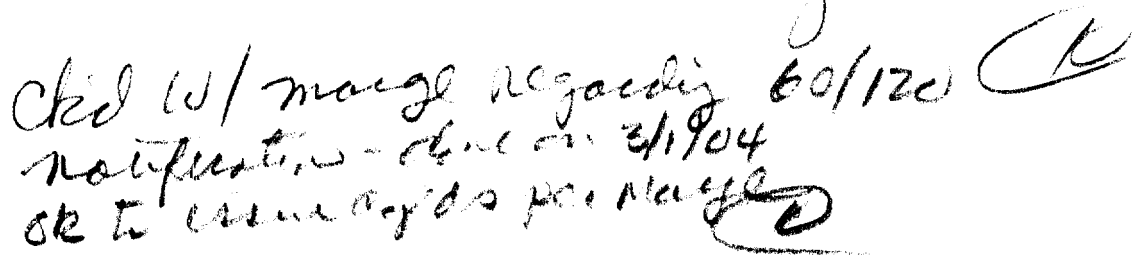 Ck'd w/ Marge Regarding 60/120
notification - done on 3/1/04
ok to issue per Marge